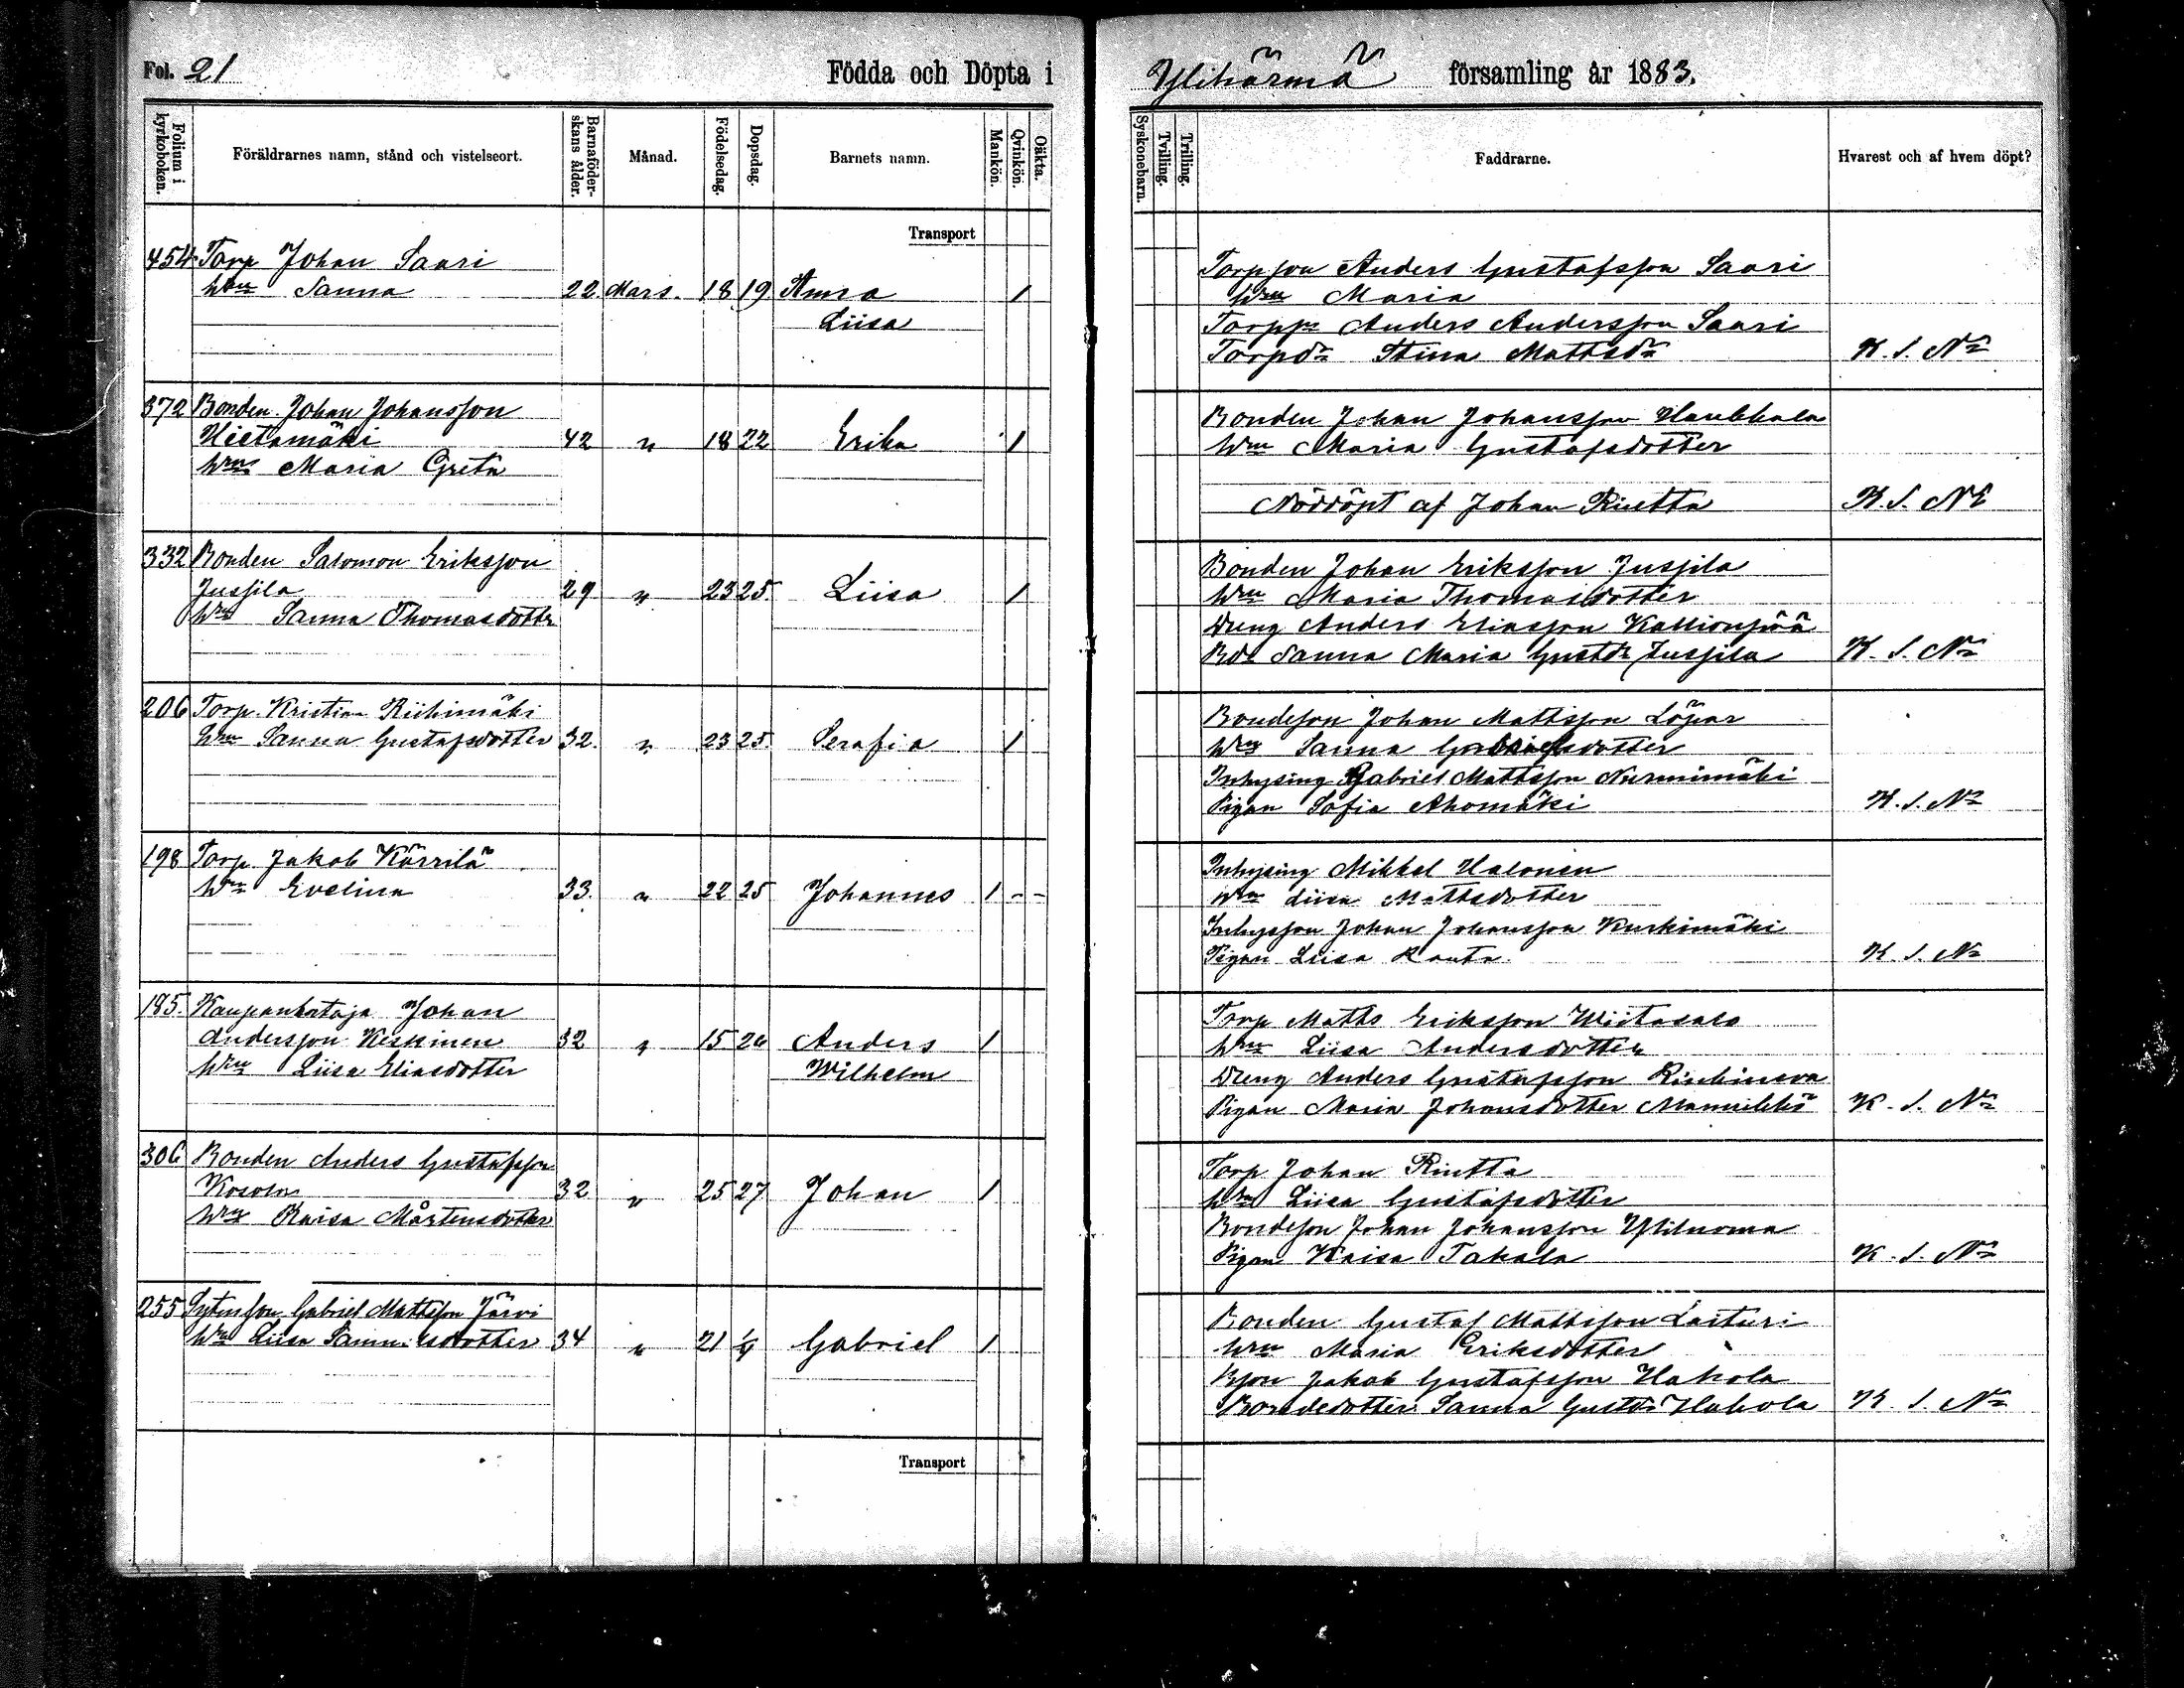 Fol. 21
Födda och Döpta i
Ylihärmä församling år 1883.
Folium i kyrkoboken.
Föräldrarnes namn, stånd och vistelseort.
Barnaföderskans ålder.
Månad.
Födelsedag.
Dopsdag.
Barnets namn.
Mankön.
Qvinkön.
Oäkta.
Syskonebarn.
Tvilling.
Trilling.
Faddrarne.
Hvarest och af hvem döpt?
Transport
454 Torp Johan Saari
hru Sanna 22. Mars. 18 19 Anna 1
Liisa
Torpson Anders Gustafsson Saari
hru Maria
Anders Andersson Saari
Stina Mattsdr K. S.
372 Bonden Johan Johansson
Hietamäki 42 " 18 22 Erika 1
hru Maria Greta
Bonden Johan Johansson Haukkala
hru Maria Gustafsdotter
Nöddöpt af Johan Rintta K. S.
332 Bonden Salomon Eriksson
Jussila 29 " 23 25. Liisa 1
hru Sanna Thomasdottr
Bonden Johan Eriksson Jussila
hru Maria Thomasdotter
Dreng Anders Eliasson
Sanna Maria Gustdr Jussila K. S.
206 Torp. Kristian Riihimäki
hru Sanna Gustafsdotter 32. " 23 25. Serafia 1
Bondeson Johan Mattsson Löpar
hru Sanna Gabrielsdotter
Inhysing Gabriel Mattsson Nurmimäki
Pigan Sofia Ahomäki K. S.
198 Torp. Jakob Kärrilä
hru Evelina 33. " 22 25 Johannes 1 - -
Inhysing Mikkel Halonen
hru Liisa Mattsdotter
Johan Johansson Kurkimäki
Pigan Liisa Rauta K. S.
185. Kaupankataja Johan
Andersson Keskinen 32 " 15 26 Anders 1
hru Liisa Eliasdotter Wilhelm
Torp Matts Eriksson Wiitasalo
hru Liisa Andersdotter
Dreng Anders Gustafsson
Pigan Maria Johansdotter K. S.
306 Bonden Anders Gustafsson
Kosola 32 " 25 27 Johan 1
hru Kaisa Mårtensdotter
Torp Johan Rintta
hru Liisa Gustafsdotter
Bondeson Johan Johansson
Pigan Kaisa Takala K. S.
255 Gabriel Mattsson Järvi
hru Liisa Samuelsdotter 34 " 21 1/4 Gabriel 1
Bonden Gustaf Mattsson Laituri
hru Maria Eriksdotter
Bson Jakob Gustafsson Hakola
Bondedotter Sanna Gustdr Hakola K. S.
Transport